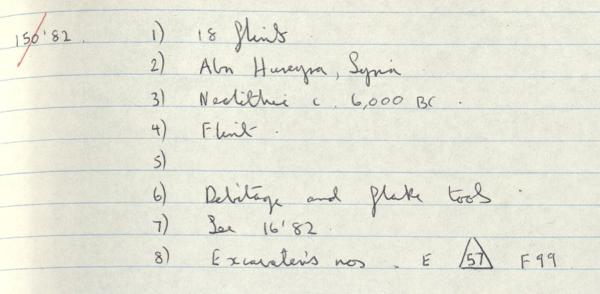 150'82 1) 18 flints
2) Abu Hureyra, Syria
3) Neolithic c. 6,000 BC.
4) Flint.
5)
6) Debitage and flake tools.
7) See 16'82.
8) Excavator's nos. E 57 F99